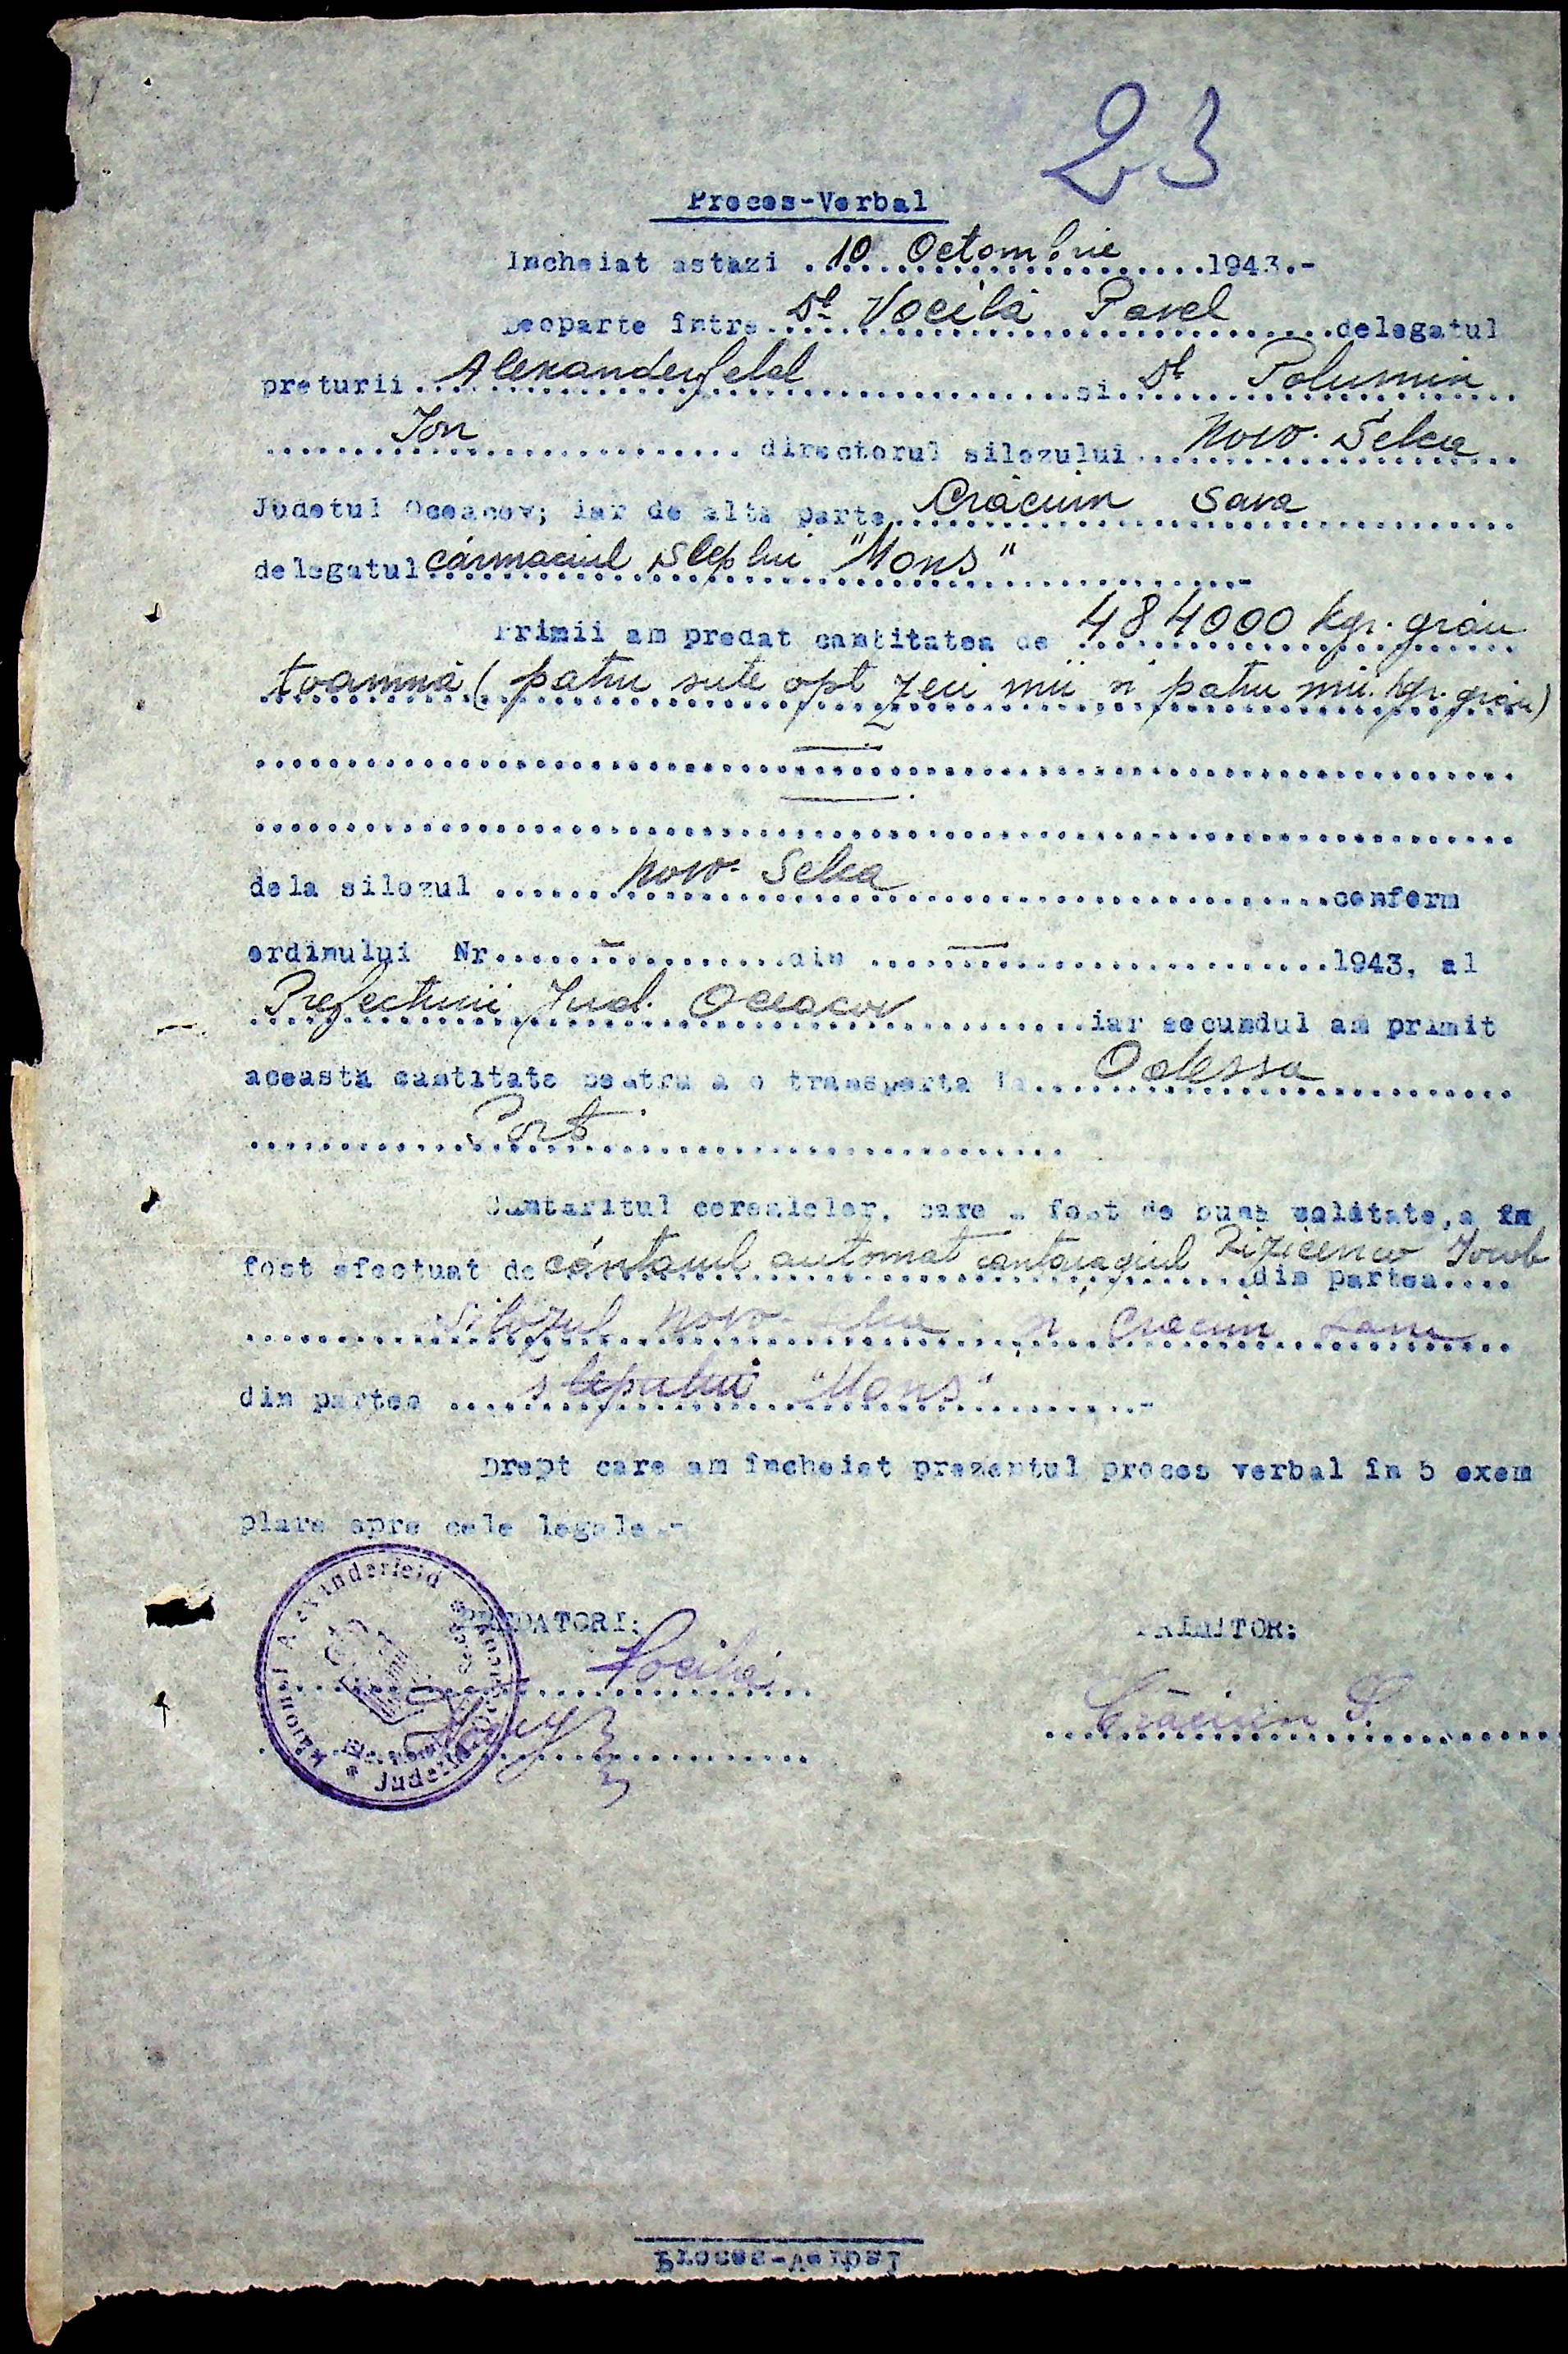 23
Proces-Verbal
Incheiat astazi .10 Octombrie.1943.-
Deoparte între Dl Vocilă Pavel delegatul
preturii Alexanderfeld si Dl Polumin
Ion directorul silozului Novo-Selca
Judetul Oceacov; iar de alta parte Crăciun Sava
delegatul cârmaciul Slep lui "Mons"
Primii am predat cantitatea de 484000 kgr. grâu
toamnă (patru sute opt zeci mii și patru mii kgr. grâu)
dela silozul Novo-Selca conform
ordinului Nr. — din — 1943, al
Prefecturii Jud. Oceacov iar secundul am primit
aceasta cantitate pentru a o transporta la Odessa
Port.
Cantaritul cerealelor, care a fost de buna calitate, a
fost efectuat de cântarul automat cantaragiul Iacob din partea
Silozul Novo-Selca și Crăciun Sava
din partea șlepului "Mons"
Drept care am încheiat prezentul proces verbal în 5 exem
plare spre cele legale.-
PREDATORI:
PRIMITOR:
Vocilă
Crăciun S.
Raionul Alexanderfeld
Judetul
Proces-Verbal